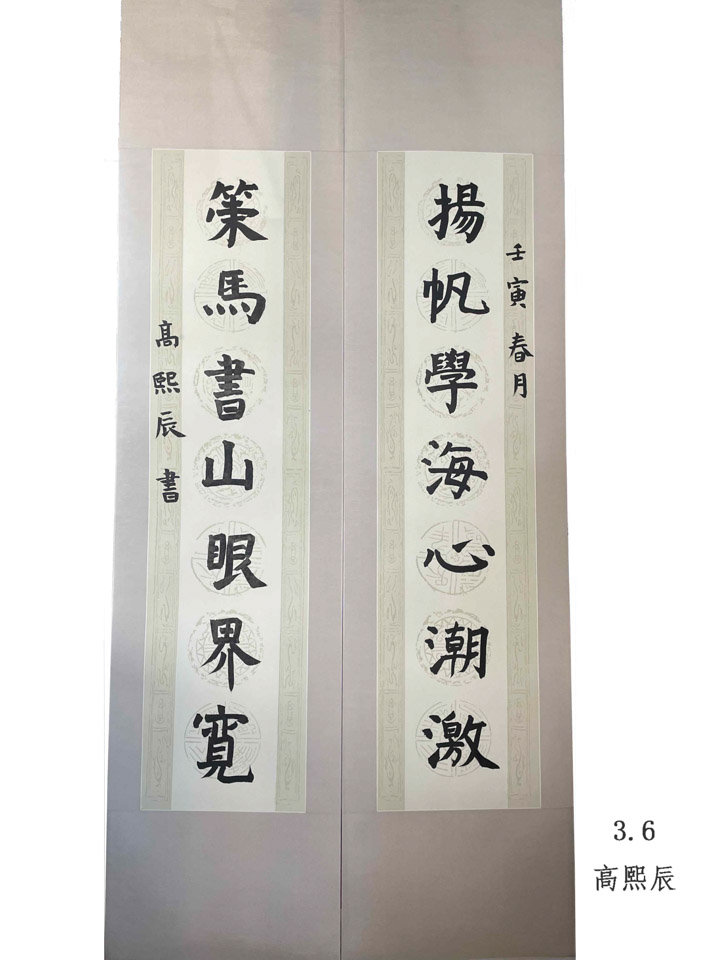 壬寅春月
揚帆學海心潮激
策馬書山眼界寬
高熙辰書
3.6
高熙辰